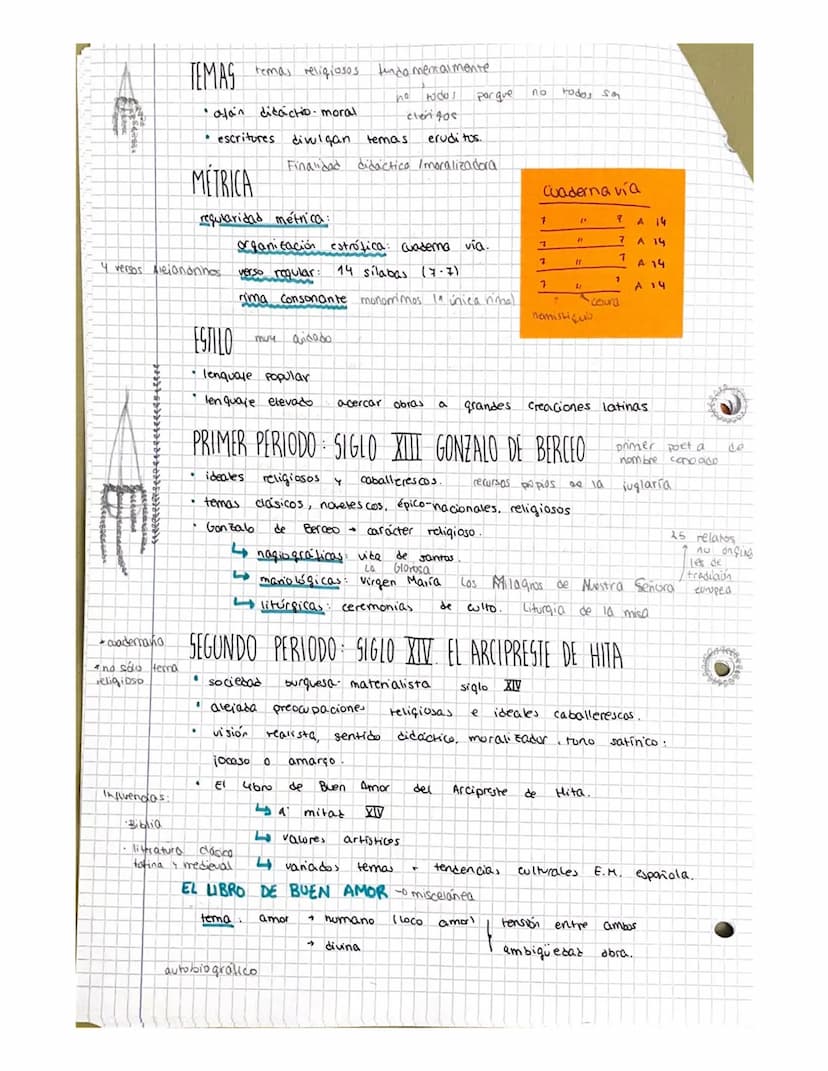 TEMAS temas religiosos fundamentalmente
no todos porque no todos son
clérigos
• afán didáctico-moral
• escritores divulgan temas eruditos.
Finalidad didáctica / moralizadora
MÉTRICA
regularidad métrica:
organización estrófica: cuaderna vía.
4 versos alejandrinos verso regular: 14 sílabas (7-7)
rima consonante monorrimos (1ª única rima)
Cuaderna vía
7 " 7 A 14
7 " 7 A 14
7 " 7 A 14
7 " 7 A 14
cesura
hemistiquio
ESTILO muy cuidado
• lenguaje popular
• lenguaje elevado acercar obras a grandes creaciones latinas
PRIMER PERIODO: SIGLO XIII GONZALO DE BERCEO primer poeta de
nombre conocido
• ideales religiosos y caballerescos. recursos propios de la juglaría
• temas clásicos, novelescos, épico-nacionales, religiosos
• Gonzalo de Berceo → carácter religioso.
↳ hagiográficas: vita de santos.
La Glorosa
↳ mariológicas: Virgen María Los Milagros de Nuestra Señora
25 relatos
no origina
les de
tradición
europea
↳ litúrgicas: ceremonias de culto. Liturgia de la misa
SEGUNDO PERIODO: SIGLO XIV. EL ARCIPRESTE DE HITA
• cuadernavía
• no sólo tema
religioso
• sociedad burguesa- materialista siglo XIV
• alejada preocupaciones religiosas e ideales caballerescos.
• visión realista, sentido didáctico, moralizador, tono satírico:
jocoso o amargo.
• El Libro de Buen Amor del Arcipreste de Hita.
↳ 1ª mitad XIV
↳ valores artísticos
↳ variados temas + tendencias culturales E.M. española.
Influencias:
·Biblia
· literatura clásica
latina y medieval
EL LIBRO DE BUEN AMOR → miscelánea
tema: amor → humano (loco amor) tensión entre ambos
→ divina ambigüedad obra.
autobiográfico